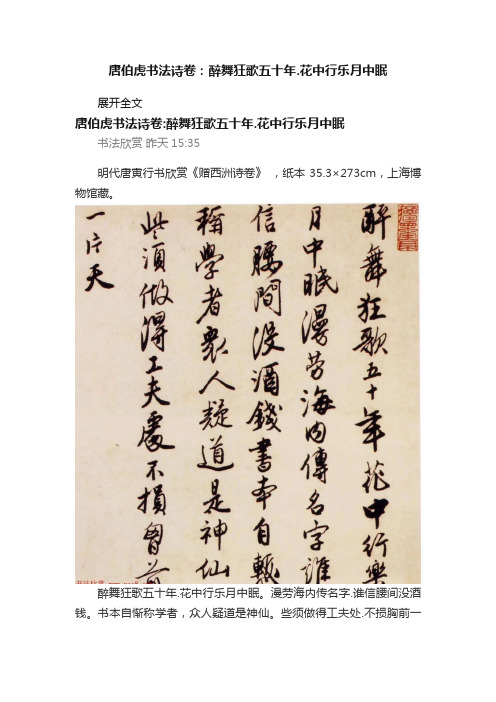 唐伯虎书法诗卷：醉舞狂歌五十年.花中行乐月中眠
展开全文
唐伯虎书法诗卷:醉舞狂歌五十年.花中行乐月中眠
书法欣赏 昨天 15:35
明代唐寅行书欣赏《赠西洲诗卷》 ，纸本 35.3×273cm，上海博
物馆藏。
醉舞狂歌五十年花中行樂
月中眠漫劳海内傳名字誰
信腰間没酒錢書本自慚
稱學者衆人疑道是神仙
些須做得工夫處不損胸前
一片天
醉舞狂歌五十年.花中行乐月中眠。漫劳海内传名字.谁信腰间没酒
钱。书本自惭称学者，众人疑道是神仙。些须做得工夫处.不损胸前一